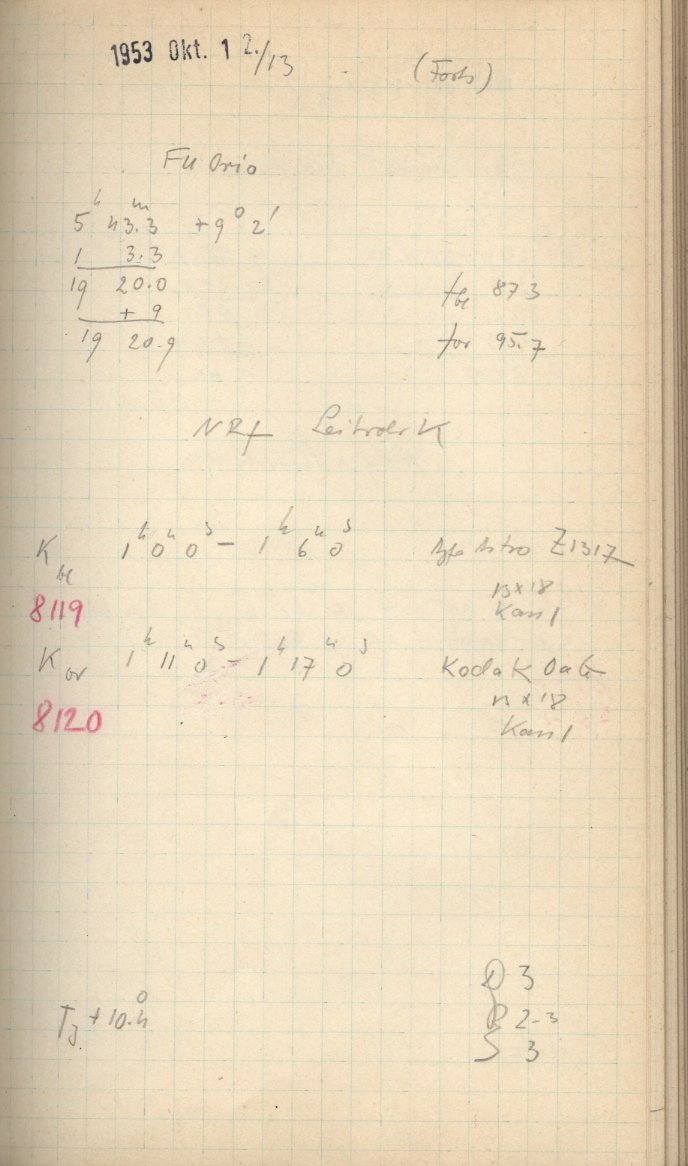 1953 Okt. 1 2./13 (Forts)
FU Orio
5h 43.3m +9° 2'
1 3.3
19 20.0
+ 9
19 20.9
fbl 87 3
for 95.7
NRf
Kbl 1h 0m 0s – 1h 6m 0s Agfa Astro Z1317
13 x 18
Kass 1
8119
Kor 1h 11m 0s – 1h 17m 0s Kodak OaG
13 x 18
Kass 1
8120
D 3
T3 +10.4°
R 2-3
S 3